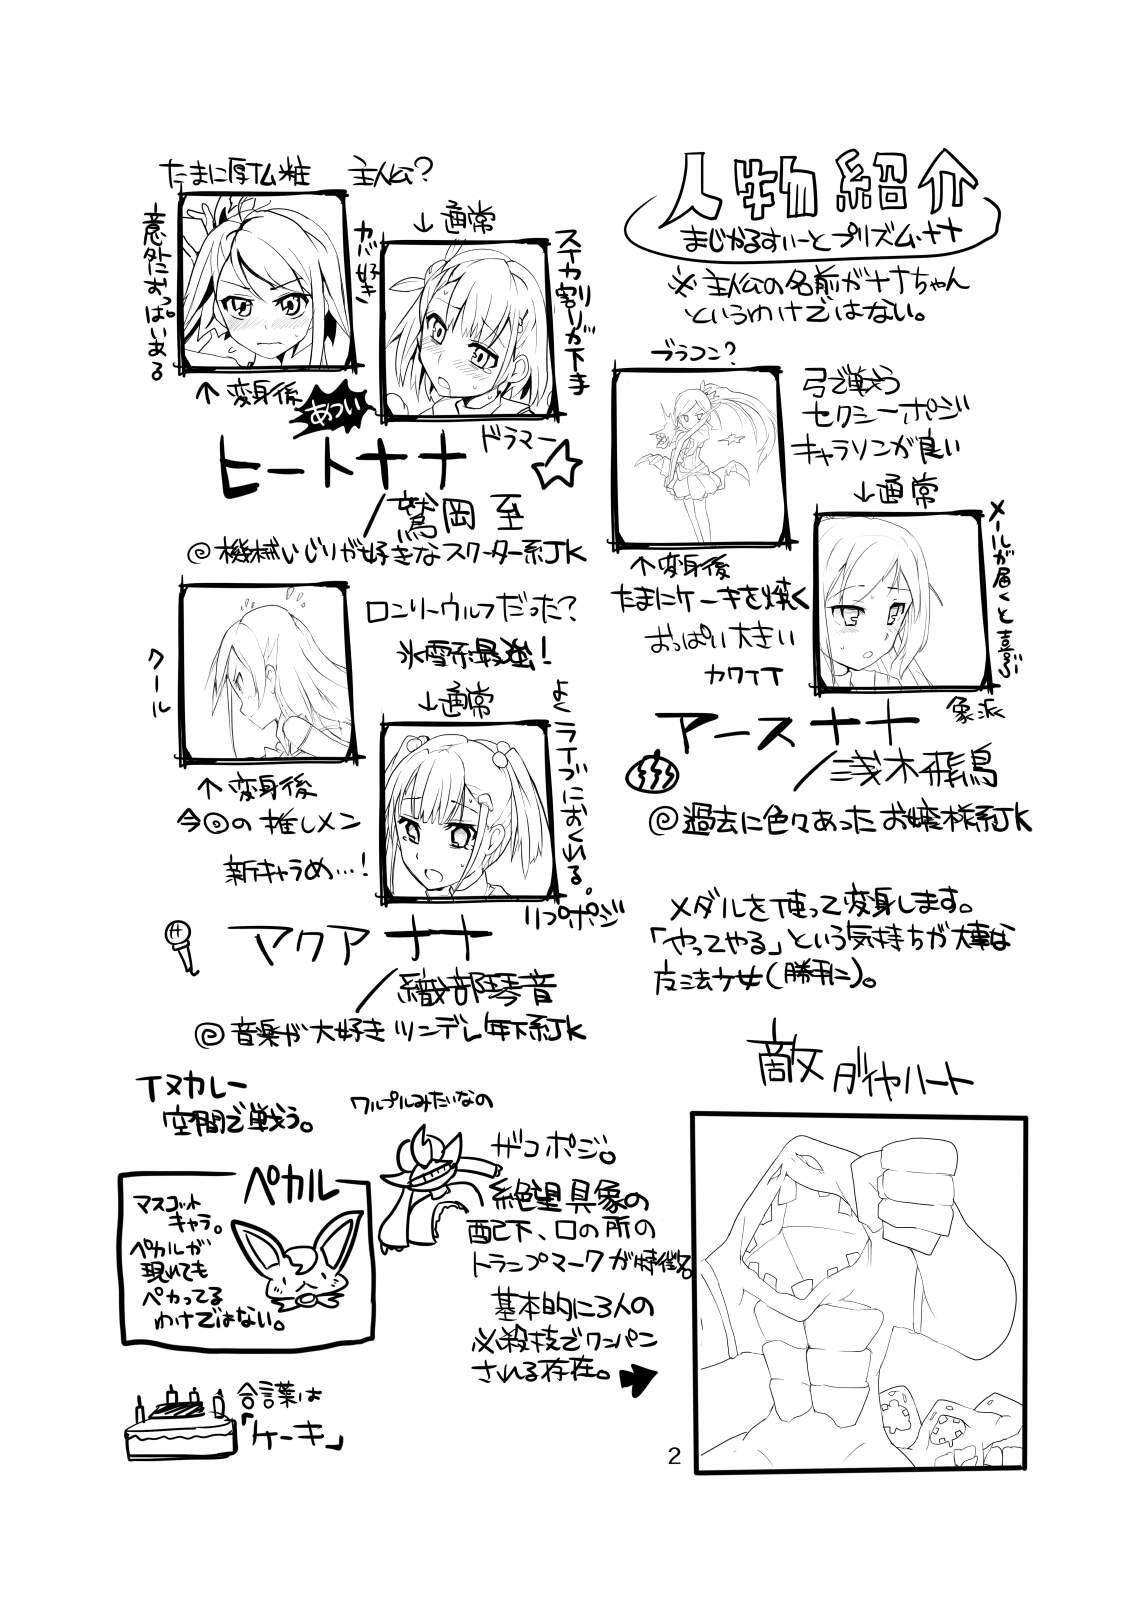 人物紹介
まじかるすいーとプリズム・ナナ
※主人公の名前がナナちゃん
というわけではない。
たまに厚化粧
主人公?
意外におっぱいある
↑変身後
あつい
カバ好き
↓通常
スイカ割りが下手
ドラマー
ヒートナナ
/鷲岡 至
@機械いじりが好きなスクーター系JK
ブラコン?
弓で戦う
セクシーポジ
キャラソンが良い
↓通常
メールが届くと喜ぶ
↑変身後
たまにケーキを焼く
おっぱい大きい
カワイイ
象派
アースナナ
/浅木飛鳥
@過去に色々あったお嬢様系JK
ロンリーウルフだった?
氷雪系最強!
クール
↓通常
よくライブにおくれる。
↑変身後
今◎の推しメン
新キャラめ…!
リップポジ
アクアナナ
/織部琴音
@音楽が大好きツンデレ年下系JK
メダルを使って変身します。
「やってやる」という気持ちが大事な
魔法少女(勝手に)。
イヌカレー
空間で戦う。
ペカル
マスコット
キャラ。
ペカルが
現れても
ペカってる
わけではない。
合言葉は
「ケーキ」
敵 ダイヤハート
ワルプルみたいなの
ザコポジ。
絶望具象の
配下、口の所の
トランプマークが特徴。
基本的に3人の
必殺技でワンパン
される存在。
2